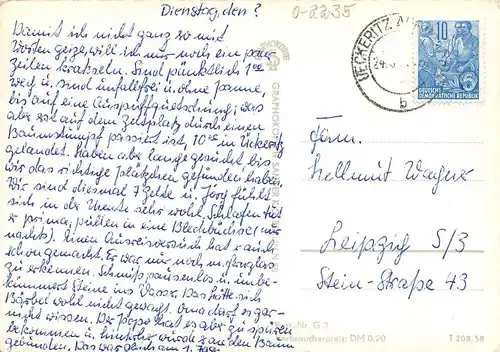 Dienstag, den ?
0-2235
Damit ich nicht ganz so mit
Worten geize, will ich nur noch ein paar
Zeilen krakseln. Sind pünktlich 1⁰⁰
weg u. sind unfallfrei u. ohne Panne,
bis auf eine Auspuffquetschung, was
aber erst auf dem Zeltplatz durch einen
Baumstumpf passiert ist, 10⁰⁰ in Ückeritz
gelandet. Haben aber lange gesucht bis
wir das richtige Plätzchen gefunden haben.
Wir sind diesmal 7 Zelte u. Jörg fühlt
sich in der Meute sehr wohl. Schlafen tut
er prima, pullen in eine Blechbüchse (nur
nachts). Einen Ausreisversuch hat er auch
schon gemacht. Er war nur noch m. Fernglas
zu erkennen. Schmiß pausenlos u. unbe-
kümmert Steine ins Wasser. Das hätte sich
Bärbel wohl nicht gewagt. Oma darf es gar-
nicht wissen. Der Popo hat es aber zu spüren
bekommen u. hinterher wurde er an den Baum
gebunden. Das war doch am 1. Tag
GRAPHOKOPIE
ÜCKERITZ
24.
b
10
DEUTSCHE
DEMOKRATISCHE REPUBLIK
Fam.
Hellmut Wagner
Leipzig S/3
Stein-Straße 43
-Nr. G 3
Verbraucherpreis: DM 0.20
T 208/58